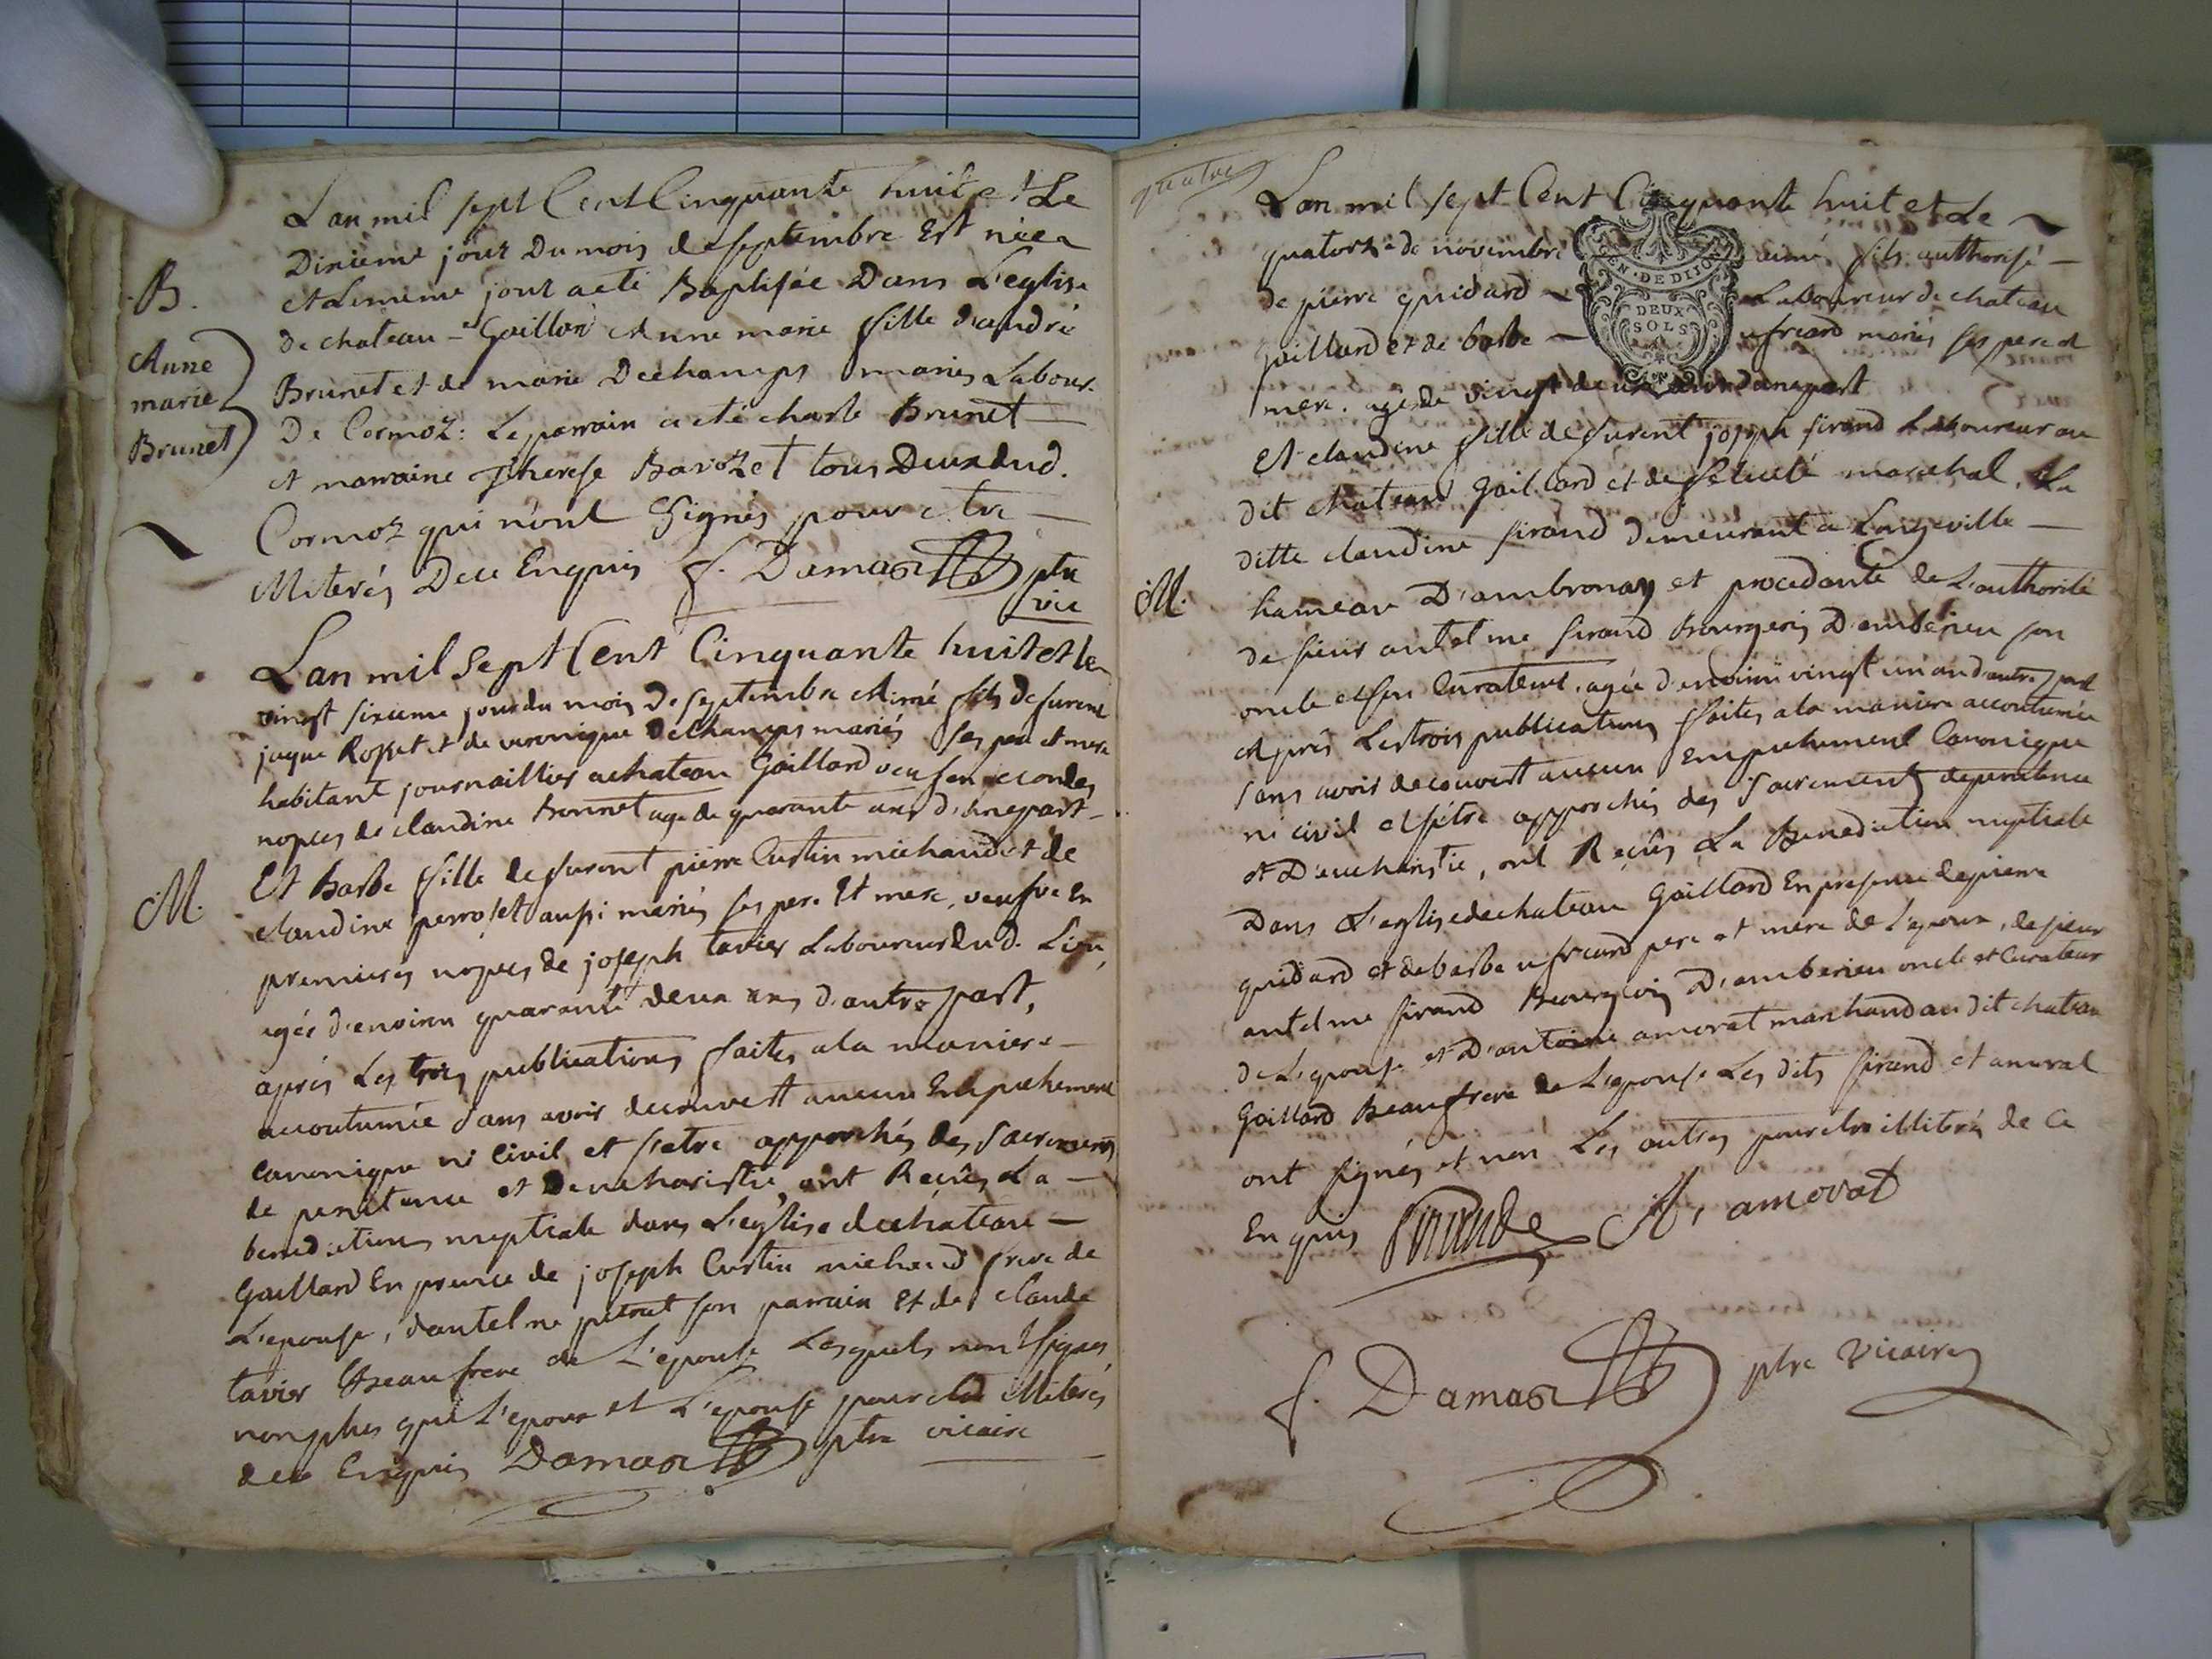 B.
Anne
marie
Brunet
Lan mil sept Cent Cinquante huit et Le
Dixieme jour Du mois de septembre Est née
et Lememe jour a eté Baptisée Dans L'eglise
de chateau-Gaillar Anne marie fille d'andré
Brunet et de marie Dechamps mariés Labour.
De Cormoz: Le parrain a eté charle Brunet
et marraine Therese Barozet tous Deux dud.
Cormoz qui n'ont signés pour etre
illiterés De ce Enquis f. Damas ptre
vic
M.
Lan mil sept Cent Cinquante huit et le
vingt sixieme jour du mois De septembre Aimé fils de furent
jaque Rosset et de veronique Dechamps mariés ses pere et mere
habitant journaillier a chateau Gaillard veuf en secondes
nopces de claudine Bonnet age de quarante ans d'une part
Et Barbe fille de furent pierre Curtin michaud et de
claudine perroset aussi mariés ses pere Et mere, veufve en
premieres nopces de joseph tavier Laboureur dud. Lieu,
agée d'environ quarante deux ans d'autre part,
après Les trois publications faites a la maniere
accoutumée sans avoir decouvert aucun Empechement
canonique ni Civil et s'etre approchés des sacremens
de penitence et Deucharistie, ont Reçûs La
benediction nuptiale dans L'eglise de chateau
Gaillard En presence de joseph Curtin michaud frere de
L'epouse, d'antelme petrat son parrain Et de claude
tavier Beaufrere de L'epouse Lesquels n'ont signés
non plus que L'epoux et L'epouse pour etre illiterés
de ce Enquis Damas ptre vicaire
quatre
Lan mil sept Cent Cinquante huit et Le
quatorze de novembre aimé fils authorisé
EN · DE DIJON
DEUX
SOLS
de pierre guidard Laboureur de chateau
Gaillard et de barbe ufreard mariés ses pere et
mere. agé de vingt deux ans d'une part
Et claudine fille de furent joseph sirand Laboureur au
dit chateau Gaillard et de felicité marechal, La
ditte claudine sirand demeurant a Longeville
M.
hameau D'ambronay et procedante de L'authorité
de sieur antelme sirand Bourgeois D'amberieu son
oncle et son Curateur, agée d'environ vingt un an d'autre part
Après Les trois publications faites a la maniere accoutumée
sans avoir decouvert aucun Empechement Canonique
ni civil et s'etre approchés des sacrements de penitence
et D'eucharistie, ont Reçûs La Benediction nuptiale
Dans L'eglise de chateau Gaillard En presence de pierre
guidard et de barbe ufreard pere et mere de L'epoux, de sieur
antelme sirand Bourgeois D'amberieu oncle et Curateur
de L'epouse et D'antoine amorat marchand au dit chateau
Gaillard Beaufrere de L'epouse Les dits sirand et amorat
ont signés et non Les autres pour etre illiterés de Ce
Enquis Sirande A. amorat
f. Damas ptre vicaire